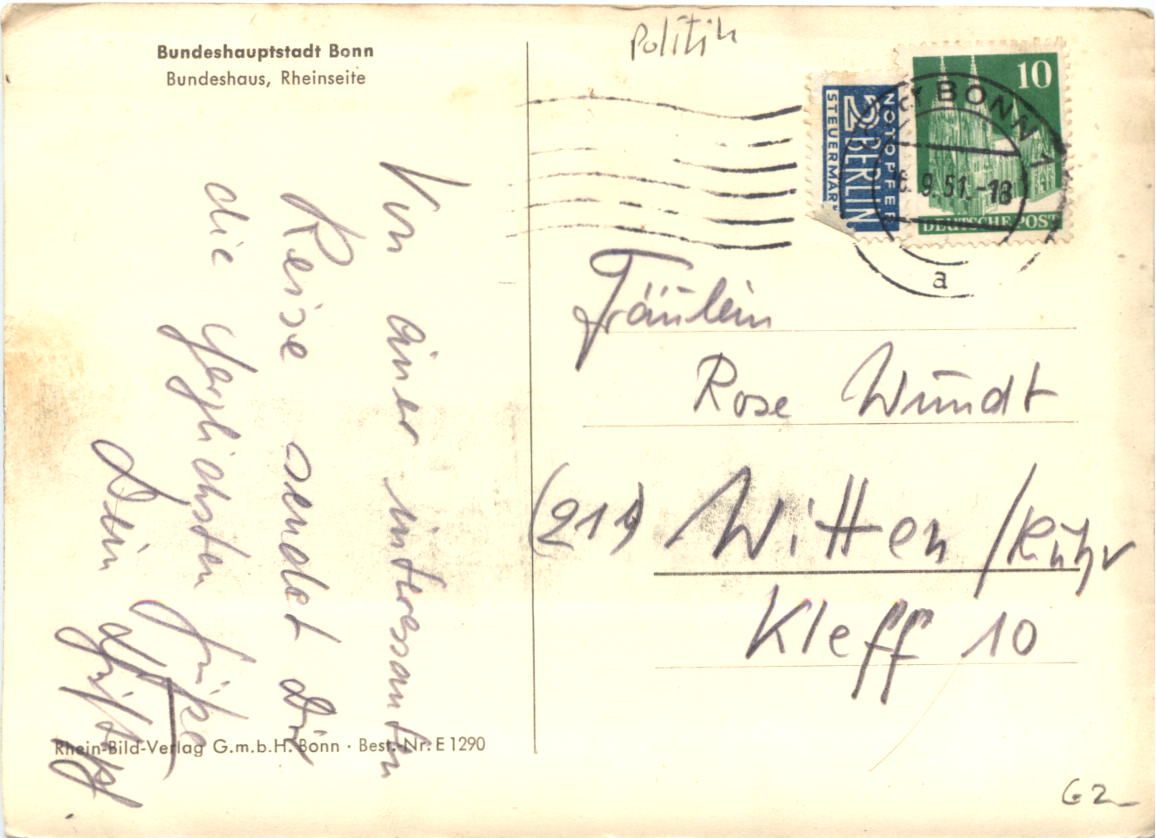 Bundeshauptstadt Bonn
Bundeshaus, Rheinseite
Politik
NOTOPFER
2 BERLIN
STEUERMAR
10
DEUTSCHE POST
BONN 1
9.51.-18
a
Von einer interessanten
Reise sendet Dir
die herzlichsten Grüße
Dein
Fräulein
Rose Wundt
Witten / Ruhr
Kleff 10
Rhein-Bild-Verlag G.m.b.H. Bonn · Best.-Nr. E 1290